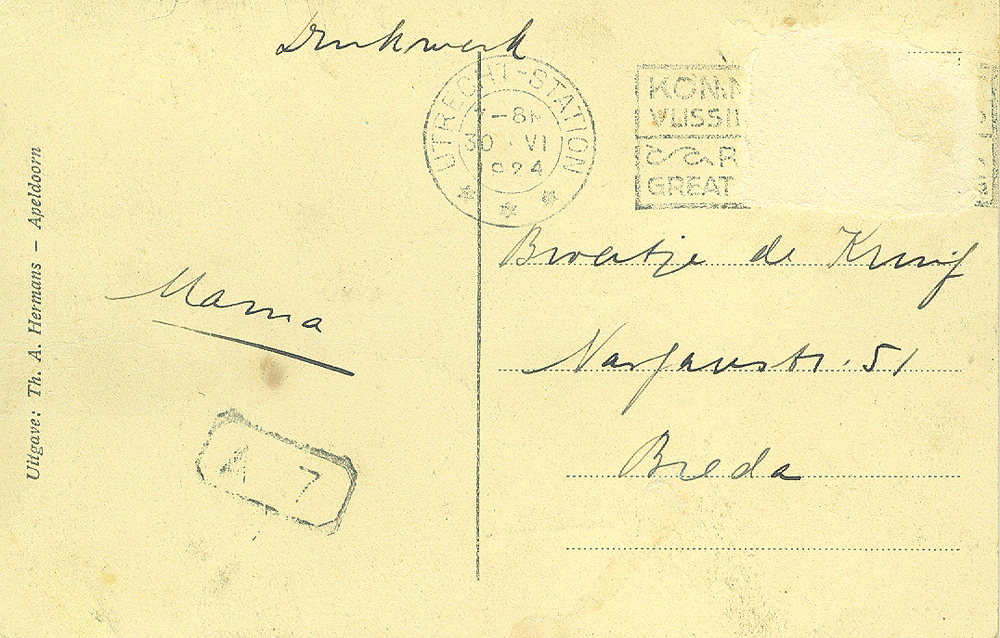 Drukwerk
UTRECHT-STATION
7-8N
30 · VI
1924
KONIN
VLISSI
R
GREAT
Broertje de Kruif
Nassaustr. 51
Breda
Mama
A 7
Uitgave: Th. A. Hermans – Apeldoorn